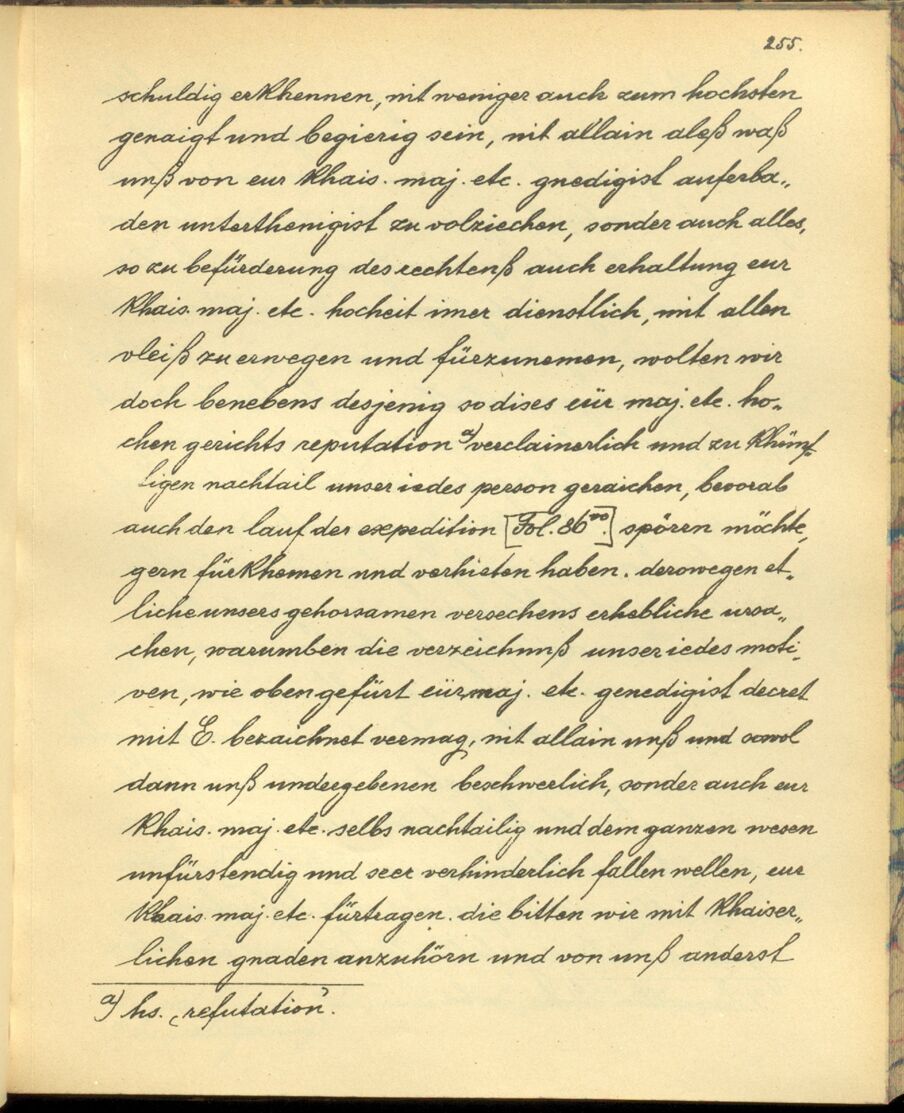 255.
schuldig erkhennen, nit weniger auch zum hochsten
genaigt und begierig sein, nit allain aleß waß
unß von eur khais. maj. etc. gnedigist auferba„
den unterthenigist zu volziechen, sonder auch alles,
so zu befürderung des rechtenß auch erhaltung eur
khais. maj. etc. hocheit imer dienstlich, mit allen
vleiß zu erwegen und fürzunemen, wolten wir
doch benebens desjenig so dises eür maj. etc. ho„
chen gerichts reputation a) verclainerlich und zu khünf„
tigen nachtail unser iedes person geraichen, bevorab
auch den lauf der expedition [Fol. 86 vo.] spörrn möchte,
gern fürkhemen und verhieten haben. derowegen et„
liche unsers gehorsamen versechens erhebliche ursa„
chen, warumben die verzeichnuß unser iedes moti„
ven, wie oben gefürt eür maj. etc. genedigist decret
mit E. bezaichnet vermag, nit allain unß und sowol
dann unß undergebenen beschwerlich, sonder auch eur
khais. maj. etc. selbs nachtailig und dem ganzen wesen
unfürstendig und seer verhinderlich fallen wellen, eur
khais. maj. etc. fürtragen. die bitten wir mit khaiser„
lichen gnaden anzuhörn und von unß anderst
a) hs. „refutation“.